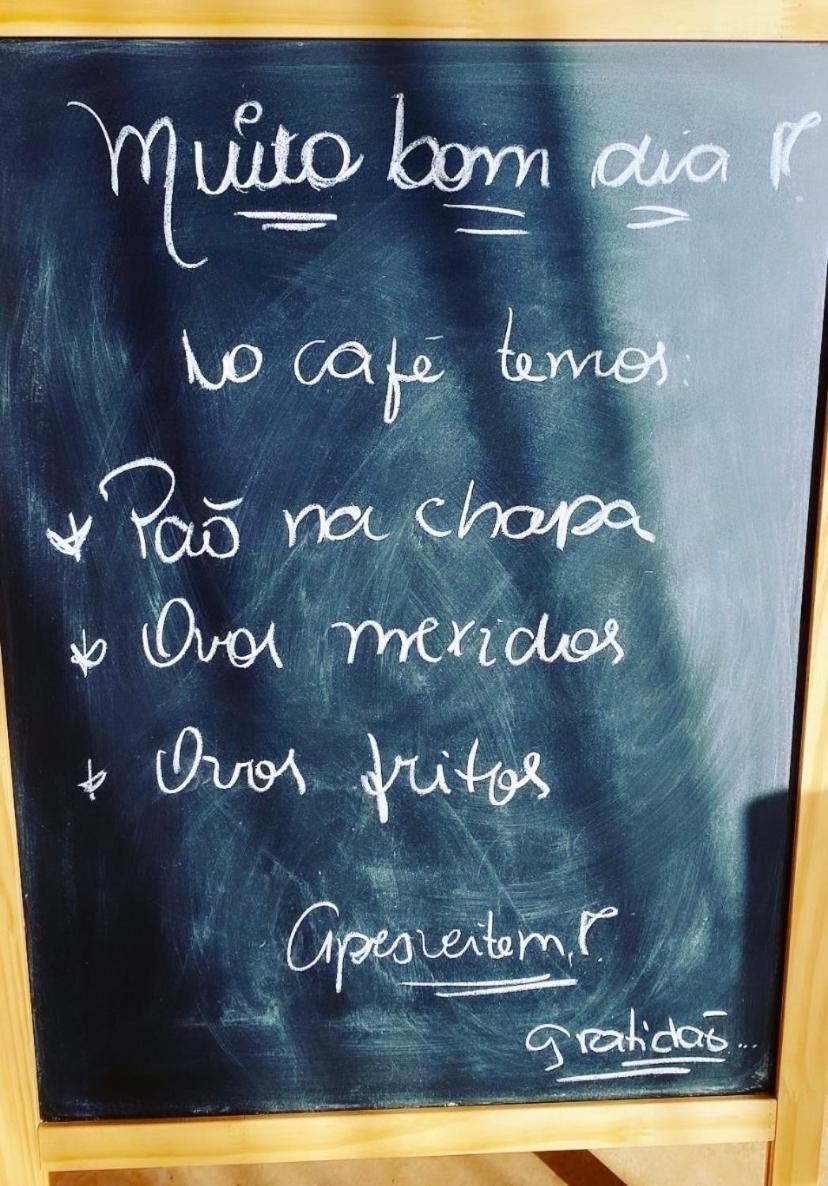 Muito bom dia!
No café temos:
* Paõ na chapa
* Ovos mexidos
* Ovos fritos
Aproveitem!
gratidaõ...